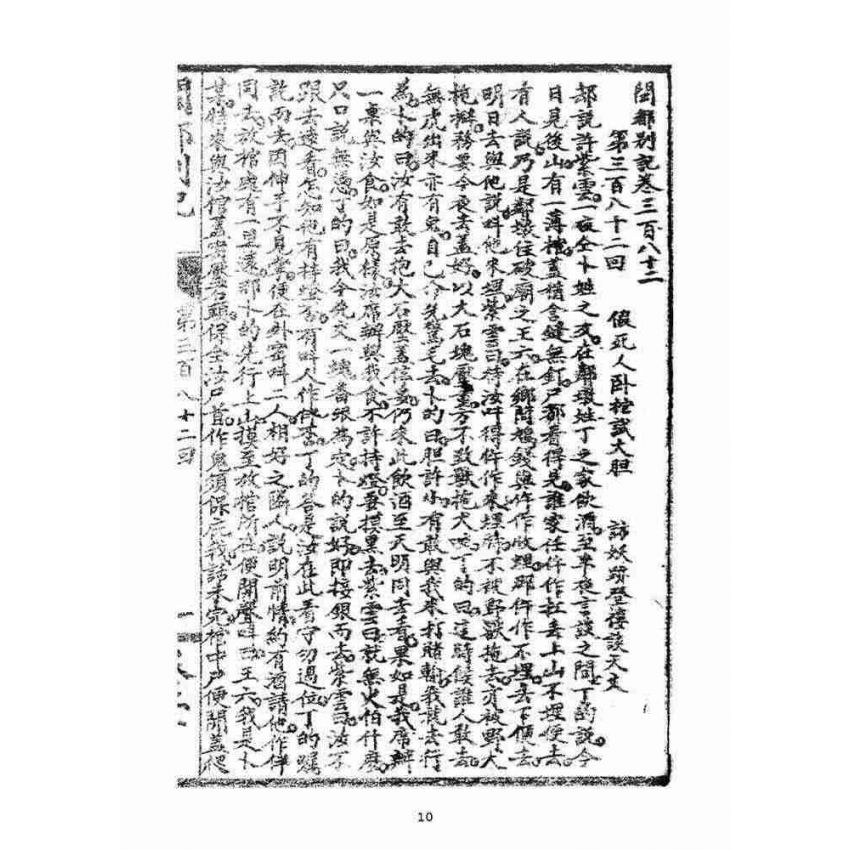 閩都别記卷三百八十二
第三百八十二回 假死人卧棺試大胆 訪妖跡登樓談天文
却説許紫雲一夜仝卜姓之友在鄰墩姓丁之家飲酒至半夜言談之間丁的說今
日見後山有一薄棺蓋積含縫無釘尸都看得見誰家任仵作扛丢上山不埋便去
有人説乃是鄰墩住破廟之王六在鄉間鳩錢與仵作收埋那仵作不埋丢下便去
明日去與他説呌他来埋紫雲曰待汝呌得仵作來埋縱不被野獸拖去亦被野犬
拖辦務要今夜去蓋好以大石塊壓蓋方不致獸拖犬吃丁的曰這時候誰人敢去
無虎出来亦有鬼自己今先驚毛去卜的曰胆許小有敢與我来打賭輸我就去行
為卜的曰汝有敢去抱大石壓蓋信多仍来此飲酒至天明同去看果如是我席辦
一桌與汝食如是屈樣汝席辦與我食不許持燈要摸黑去紫雲曰就無火怕什麽
只口説無憑丁的曰我今先交一塊番銀為定卜的説好即接銀而去紫雲曰汝不
跟去遠看怎知他有持燈否有呌人作伴否丁的答是汝在此看守勿過位丁的囑
訖而去因伸手不見掌便在外密呌二人相好之隣人説明前情約有酒請他作伴
同去放棺處有一望遠那卜的先行上山摸至放棺所在便開聲呌曰王六我是卜
某特来與汝棺蓋好壓石頭保全汝尸首作鬼須保庇我話未完棺中尸便開蓋爬
閩都别記 第三百八十二回
10